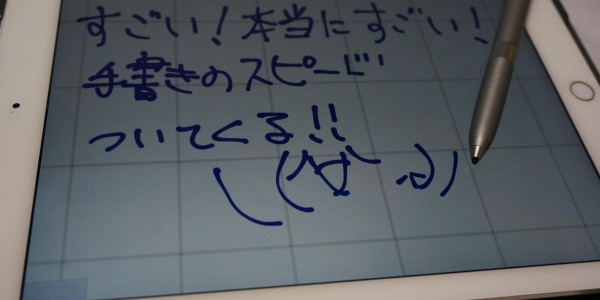 すごい！本当にすごい！
手書きのスピード
ついてくる!!